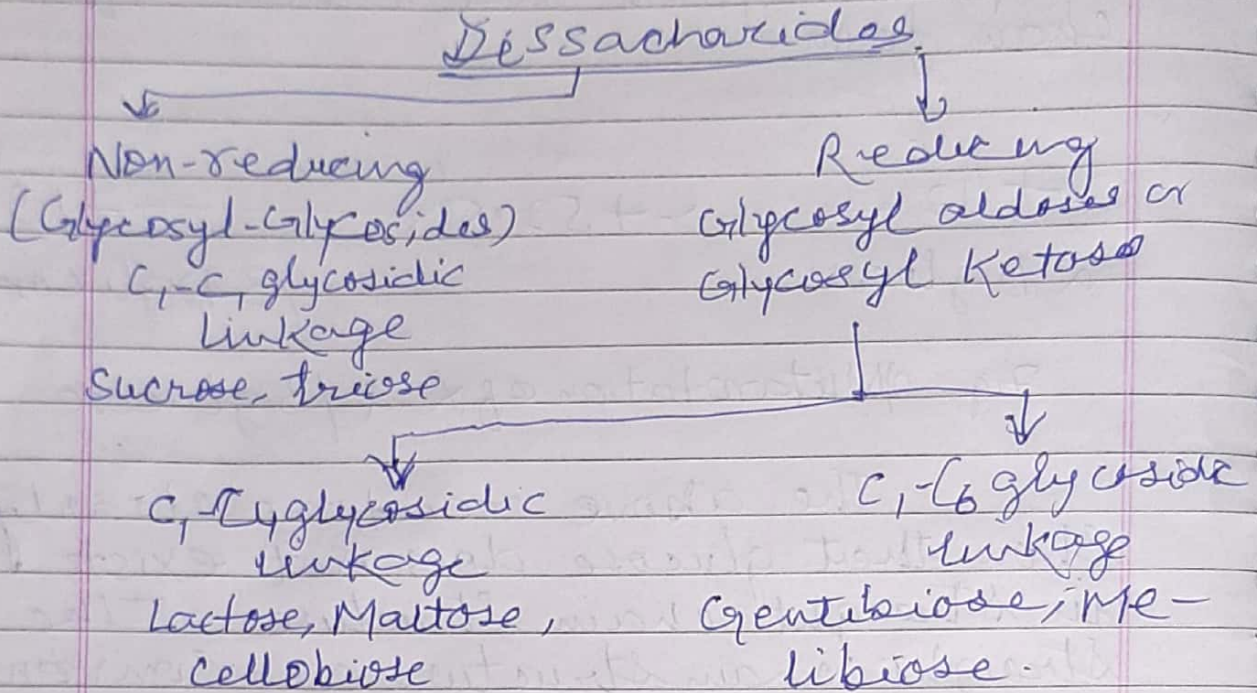 Dissacharides
Non-reducing
(Glycosyl-Glycosides)
C₁-C₁ glycosidic
linkage
Sucrose, triose
Reducing
Glycosyl aldoses or
Glycosyl Ketoses
C₁-C₄ glycosidic
linkage
Lactose, Maltose,
Cellobiose
C₁-C₆ glycosidic
linkage
Gentibiose, Me-
libiose.